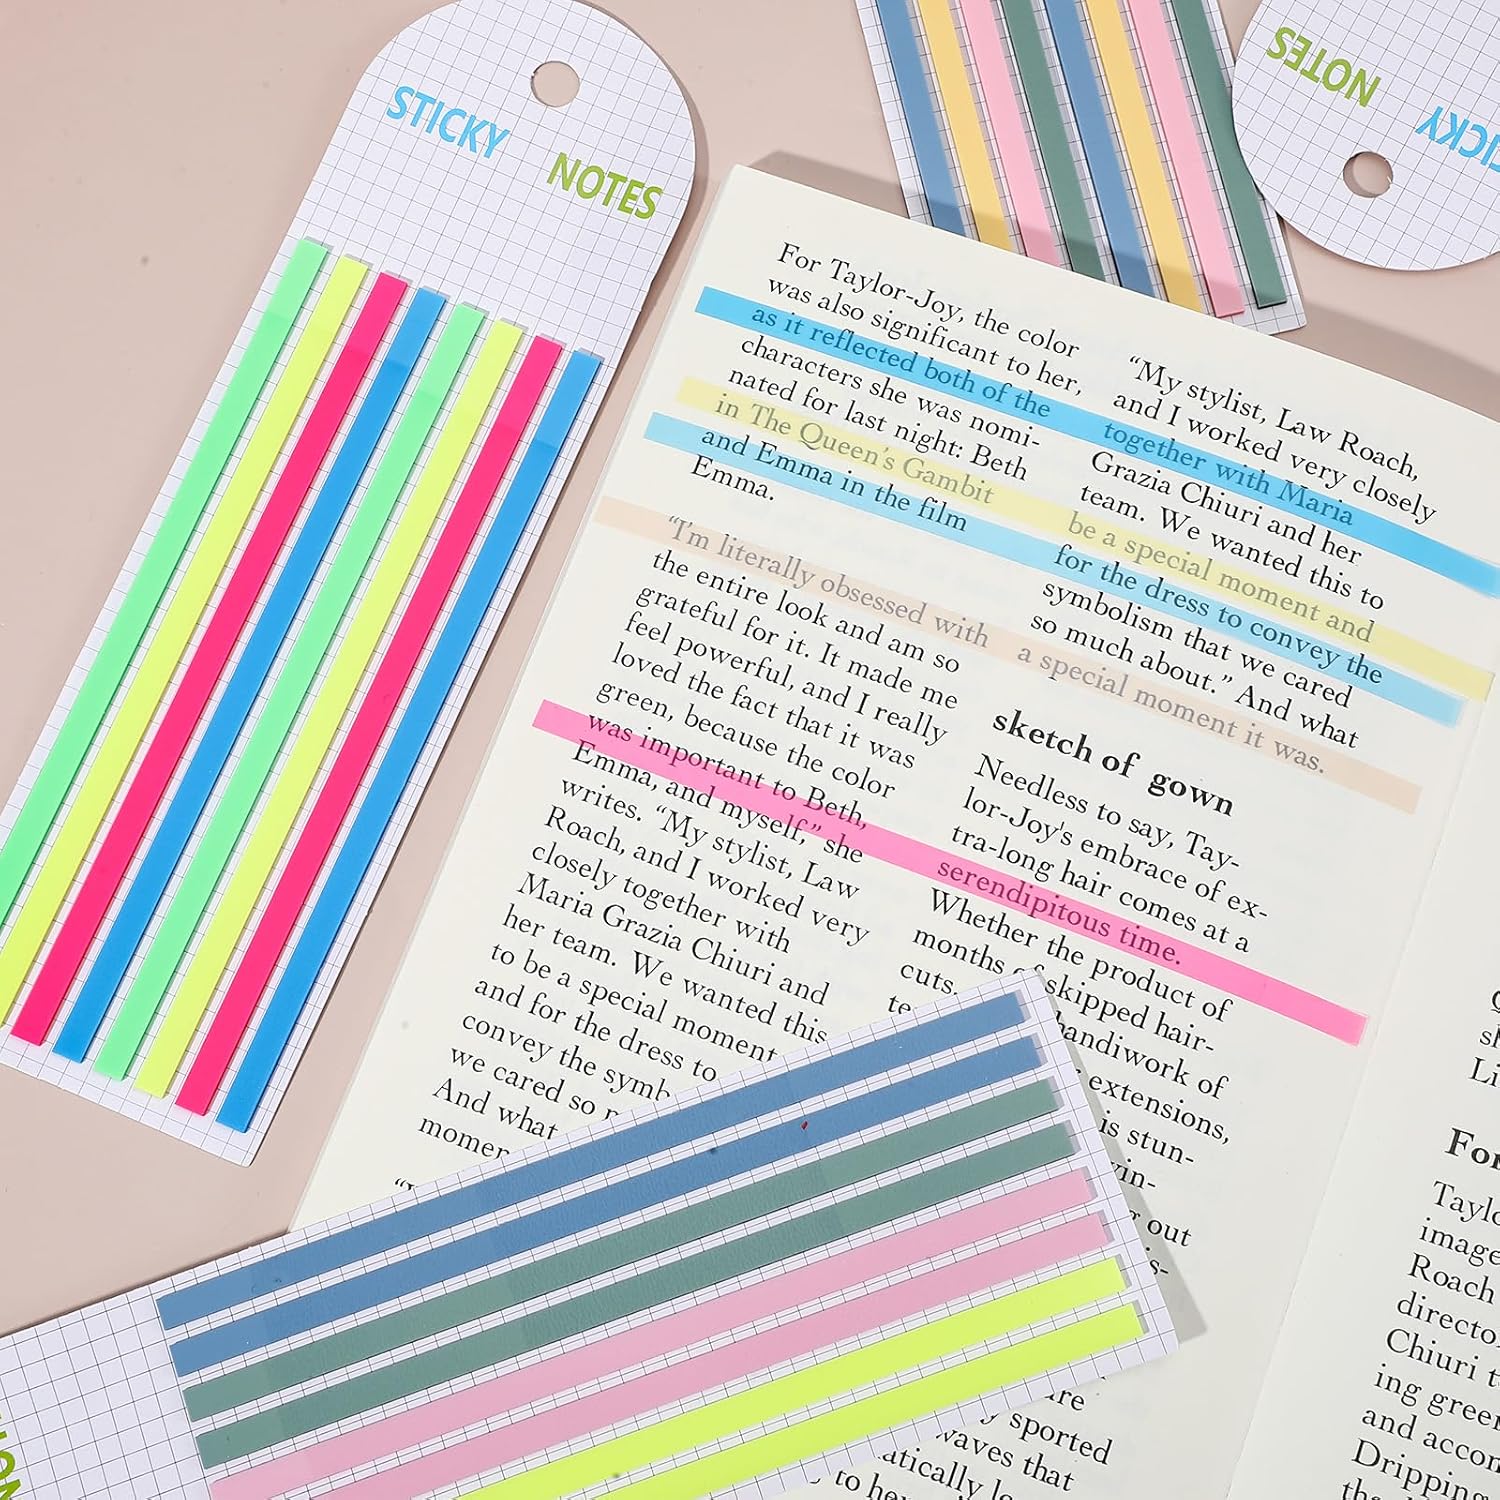 STICKY
NOTES
NOTES
For Taylor-Joy, the color
was also significant to her,
as it reflected both of the
characters she was nomi-
nated for last night: Beth
in The Queen's Gambit
and Emma in the film
Emma.
"I'm literally obsessed with
the entire look and am so
grateful for it. It made me
feel powerful, and I really
loved the fact that it was
green, because the color
was important to Beth,
Emma, and myself," she
writes. "My stylist, Law
Roach, and I worked very
closely together with
Maria Grazia Chiuri and
her team. We wanted this
to be a special moment
and for the dress to
convey the symb
we cared so
And what
momen
"My stylist, Law Roach,
and I worked very closely
together with Maria
Grazia Chiuri and her
team. We wanted this to
be a special moment and
for the dress to convey the
symbolism that we cared
so much about." And what
a special moment it was.
sketch of gown
Needless to say, Tay-
lor-Joy's embrace of ex-
tra-long hair comes at a
serendipitous time.
Whether the product of
months of skipped hair-
cuts,
te
andiwork of
extensions,
is stun-
vin-
out
is-
are
y sported
waves that
atically lo
to her
For
Taylo
image
Roach
directo
Chiuri t
ing green
and accom
Dripping